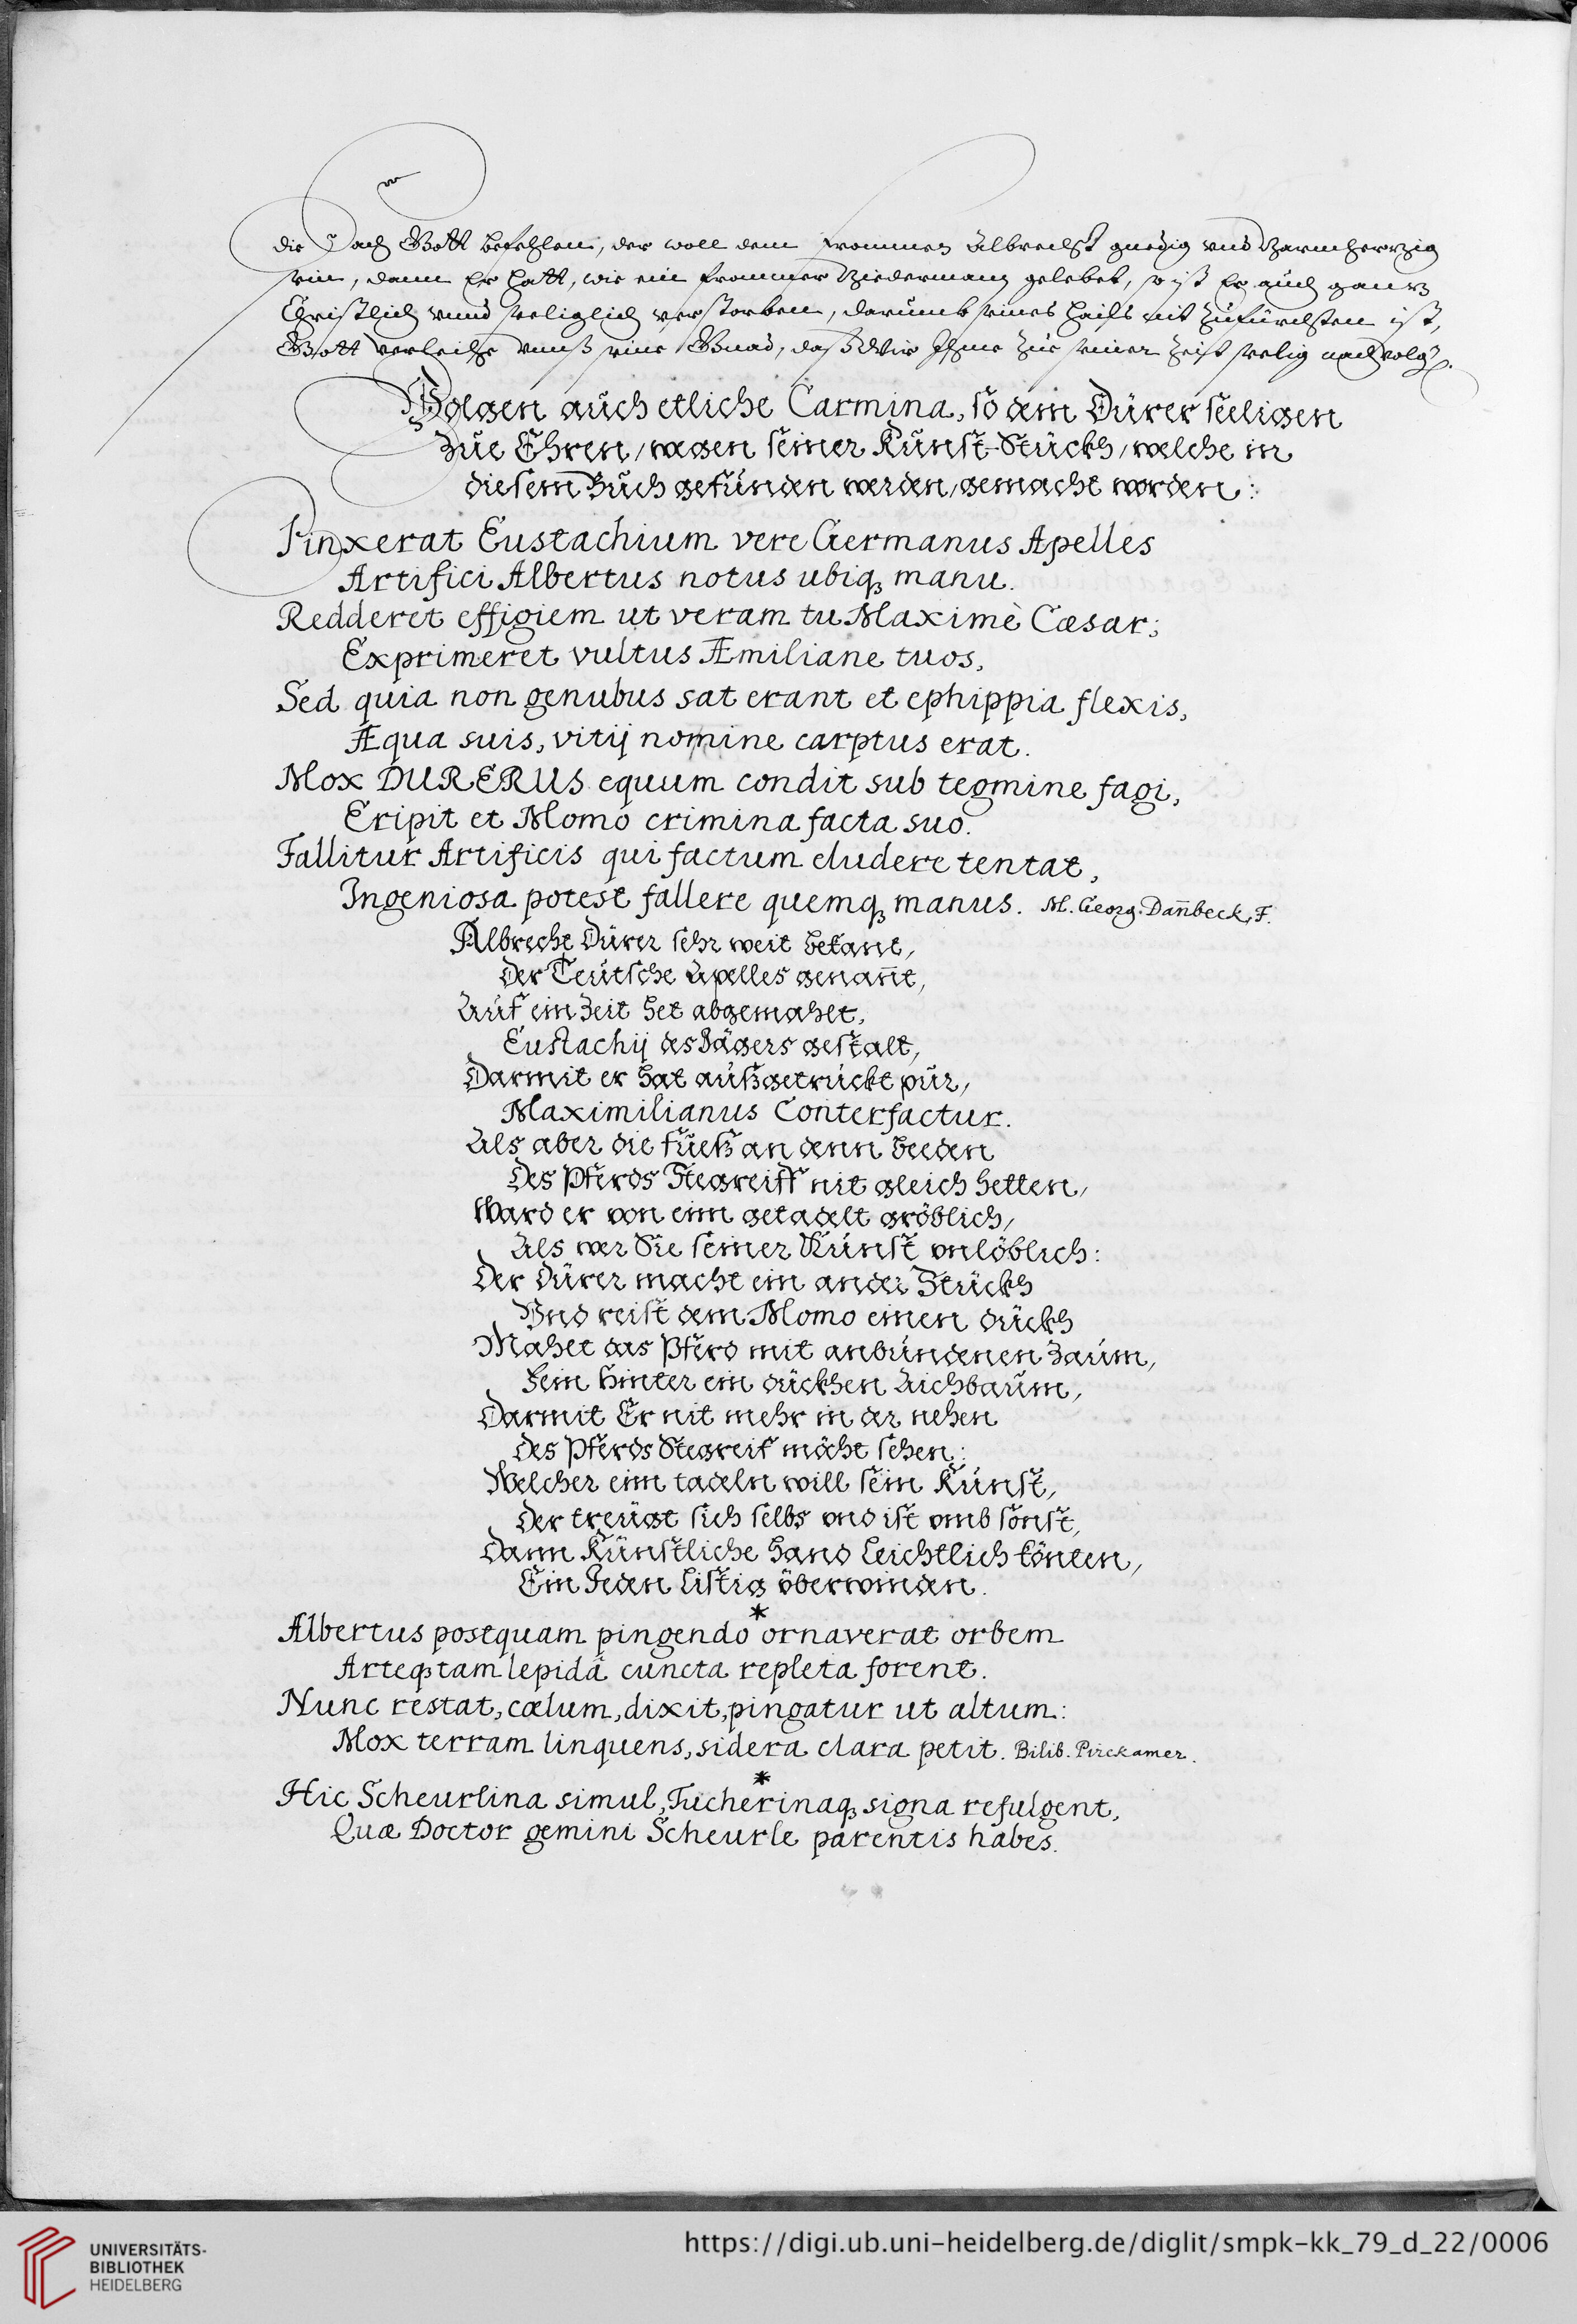 die Sach Gott befehlen, der woll dem frommen Albrecht gnedig und Barmherzig
sein, dann Er hatt, wie ein frommer Biedermann gelebet, so ist Er auch gantz
Christlich unnd seeliglich verstorben, darumb seines Hails nit zufürchten ist,
Gott verleihe unnß seine Gnad, daß Wir Ihme zue seiner Zeit seelig nachvolgē.
Volgen auch etliche Carmina, so dem Dürer seeligen
zue Ehren / wegen seiner Kunst-Stückh / welche in
diesem Buch gefunden werden / gemacht worden:
Pinxerat Eustachium vere Germanus Apelles
Artifici Albertus notus ubiq₃ manu.
Redderet effigiem ut veram tu Maximè Cæsar;
Exprimeret vultus Æmiliane tuos,
Sed quia non genubus sat erant et ephippia flexis,
Æqua suis, vitij nomine carptus erat.
Mox DURERUS equum condit sub tegmine fagi,
Eripit et Momo crimina facta suo.
Fallitur Artificis qui factum eludere tentat,
Ingeniosa potest fallere quemq₃ manus. M. Georg. Dan̄beck, F.
Albrecht Dürer sehr weit bekant,
der Teutsche Apelles genan̄t,
Auf ein Zeit het abgemahlt,
Eustachij des Jägers gestalt,
Darmit er hat außgetruckt pur,
Maximilianus Conterfactur.
Als aber die füeß an denn beeden
des Pferds Stegreiff nit gleich hetten,
Ward er von eim getadelt gröblich,
Als wer Sie seiner Kunst unlöblich:
Der Dürer macht ein ander Stückh
Und reist dem Momo einen dückh
Mahlt das Pferd mit anbundenen Zaum,
Fein hinter ein dückhen Aichbaum,
Darmit Er nit mehr in der nehen
des Pferds Stegreif mächt sehen:
Welcher eim tadeln will sein Kunst,
der treugt sich selbs und ist umb sonst,
Dann Künstliche hand leichtlich könten,
Ein Jeden listig überwinden.
*
Albertus postquam pingendo ornaverat orbem
Arteq₃ tam lepidâ cuncta repleta forent.
Nunc restat, cælum, dixit, pingatur ut altum:
Mox terram linquens, sidera clara petit. Bilib. Pirckamer.
*
Hic Scheurlina simul, Tucherinaq₃ signa refulgent,
Quæ Doctor gemini Scheurle parentis habes.
UNIVERSITÄTS-
BIBLIOTHEK
HEIDELBERG
https://digi.ub.uni-heidelberg.de/diglit/smpk-kk_79_d_22/0006